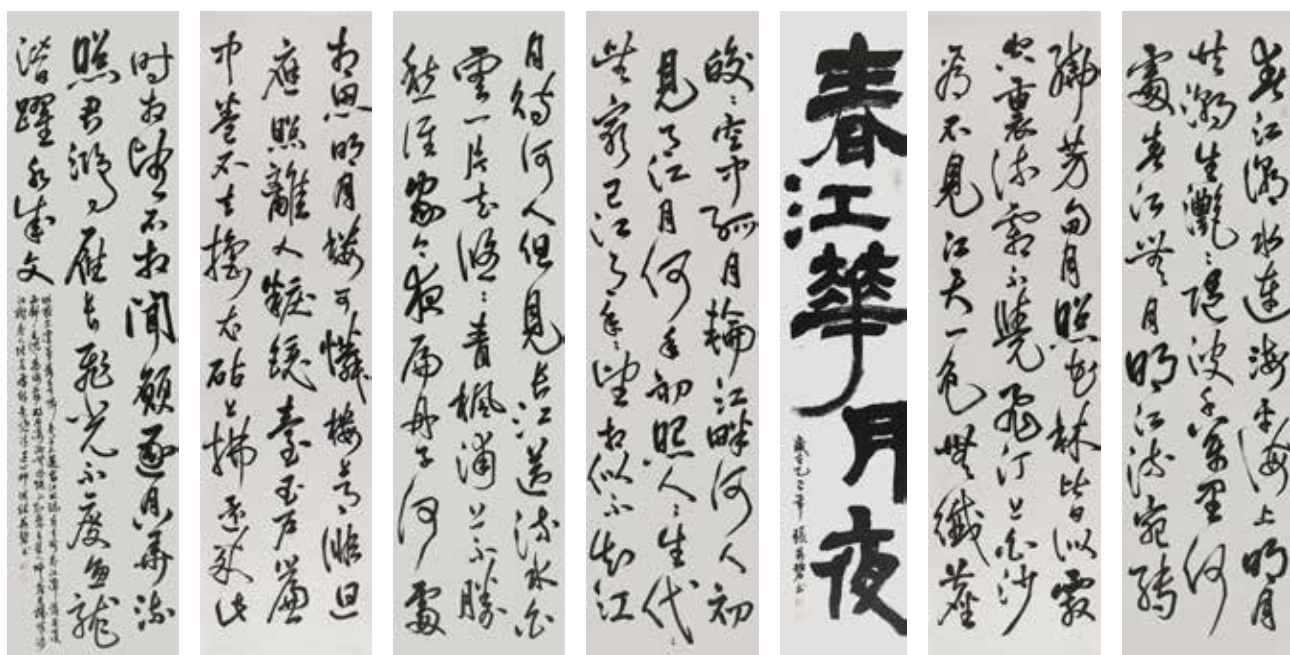 春江潮水連海平海上明月
共潮生灩灩隨波千萬里何
處春江無月明江流宛轉
繞芳甸月照花林皆似霰
空裏流霜不覺飛汀上白沙
看不見江天一色無纖塵
春江華月夜
皎皎空中孤月輪江畔何人初
見月江月何年初照人人生代代
無窮已江月年年望相似不知江
月待何人但見長江送流水白
雲一片去悠悠青楓浦上不勝
愁誰家今夜扁舟子何處
相思明月樓可憐樓上月徘徊
應照離人妝鏡臺玉戶簾
中卷不去擣衣砧上拂還來此
時相望不相聞願逐月華流
照君鴻雁長飛光不度魚龍
潛躍水成文